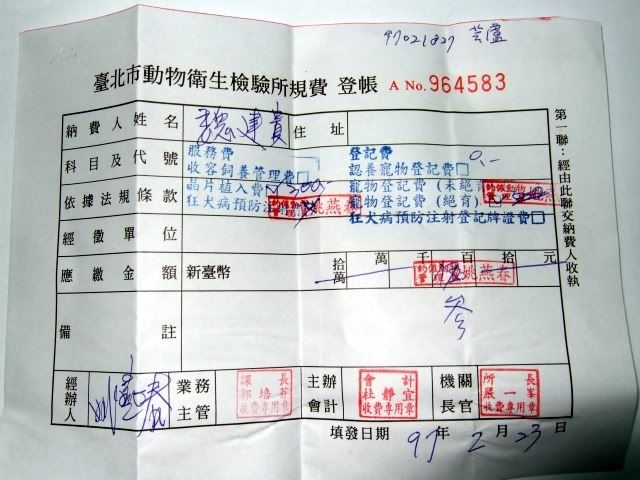 97021827
臺北市動物衛生檢驗所規費 登帳 A No. 964583
納費人姓名 魏連貴 住址
科目及代號
服務費
收容飼養管理費
登記費
認養寵物登記費 0.-
依據法規條款
晶片植入費 300.-
狂犬病預防注射
姚燕春
寵物登記費(未絕育
寵物登記費(絕育)
狂犬病預防注射登記牌證費
經徵單位
應繳金額 新臺幣 拾萬 萬 千 百 拾 元
姚燕春
備註
經辦人
業務主管
課長 郭培芬 收費專用章
主辦會計
會計 杜靜宜 收費專用章
機關長官
所長 嚴一峯 收費專用章
填發日期 97 年 2 月 23 日
第一聯:經由此聯交納費人收執